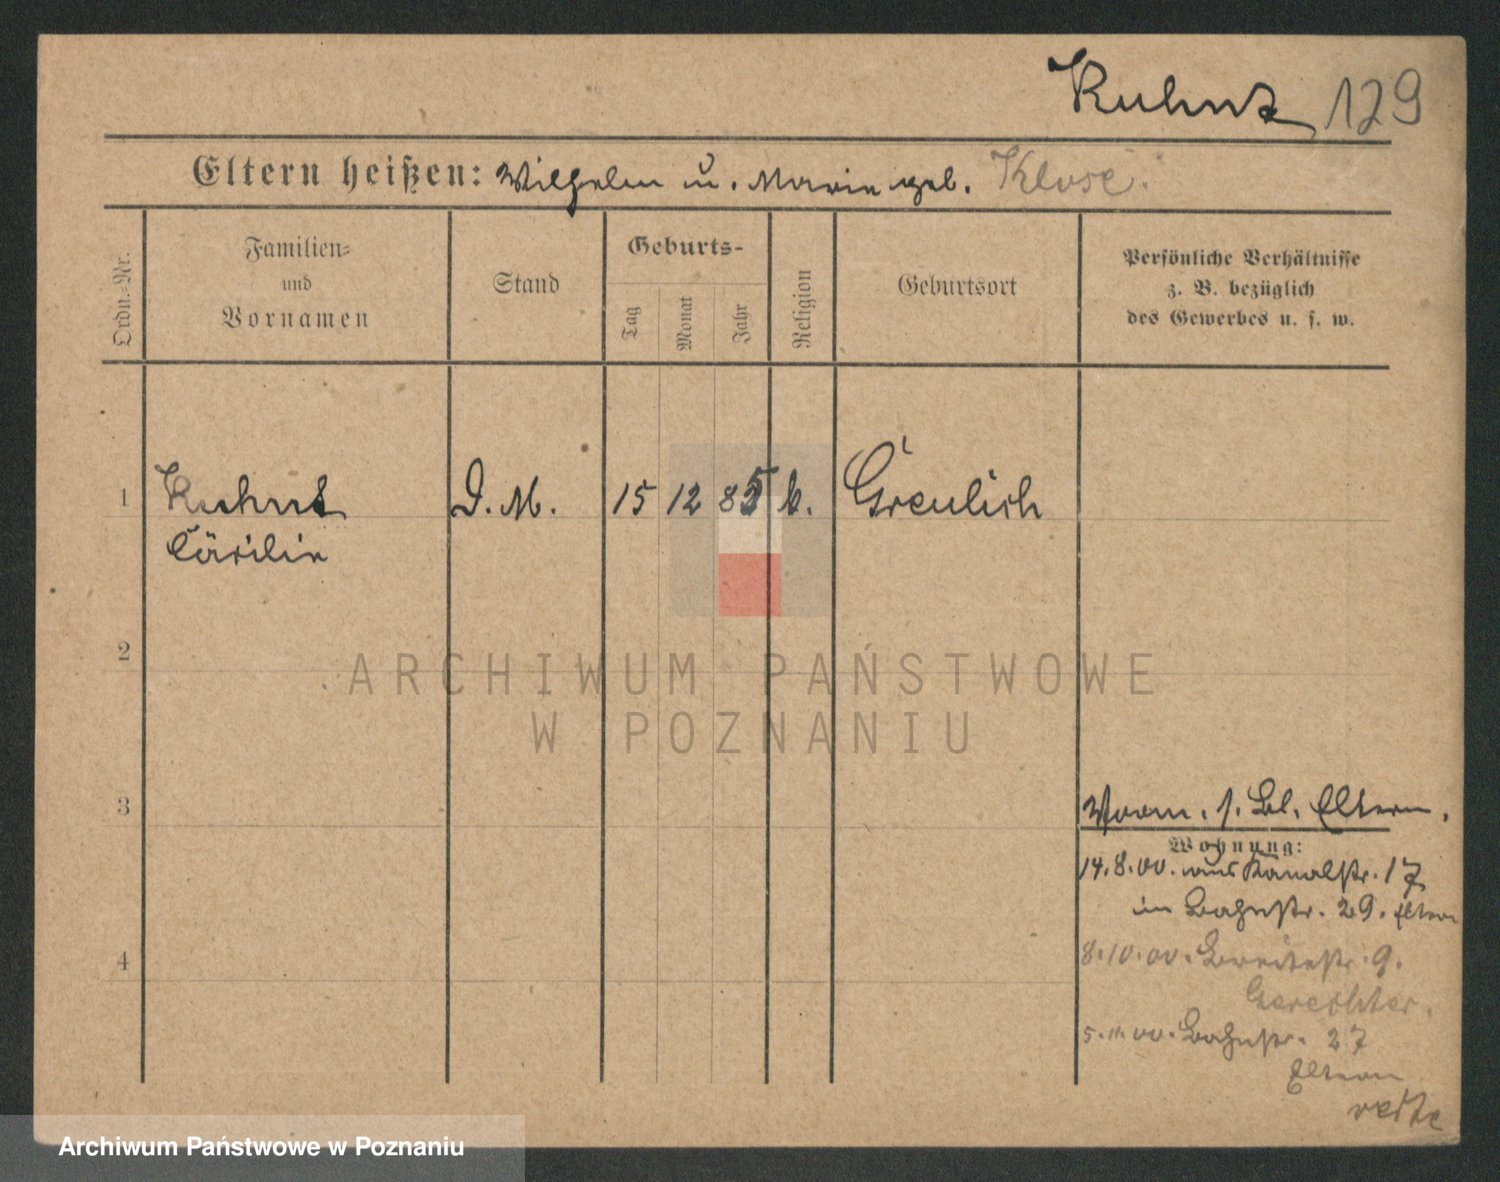 Kuhnt 129
Eltern heißen: Wilhelm u. Marie geb. Klose.
Ordn.-Nr.
Familien-
und
Vornamen
Stand
Geburts-
Tag
Monat
Jahr
Religion
Geburtsort
Persönliche Verhältnisse
z. B. bezüglich
des Gewerbes u. s. w.
1 Kuhnt D. M. 15 12 85 k. Greulich
Cäcilie
2
ARCHIWUM PAŃSTWOWE
W POZNANIU
3
Vorm. s. Bl. Eltern.
Wohnung:
14.8.00. aus Kanalstr. 17
in Bahnstr. 29. Eltern
4
8.10.00. Breitestr. 9.
5.11.00. Bahnstr. 27
Eltern
Archiwum Państwowe w Poznaniu